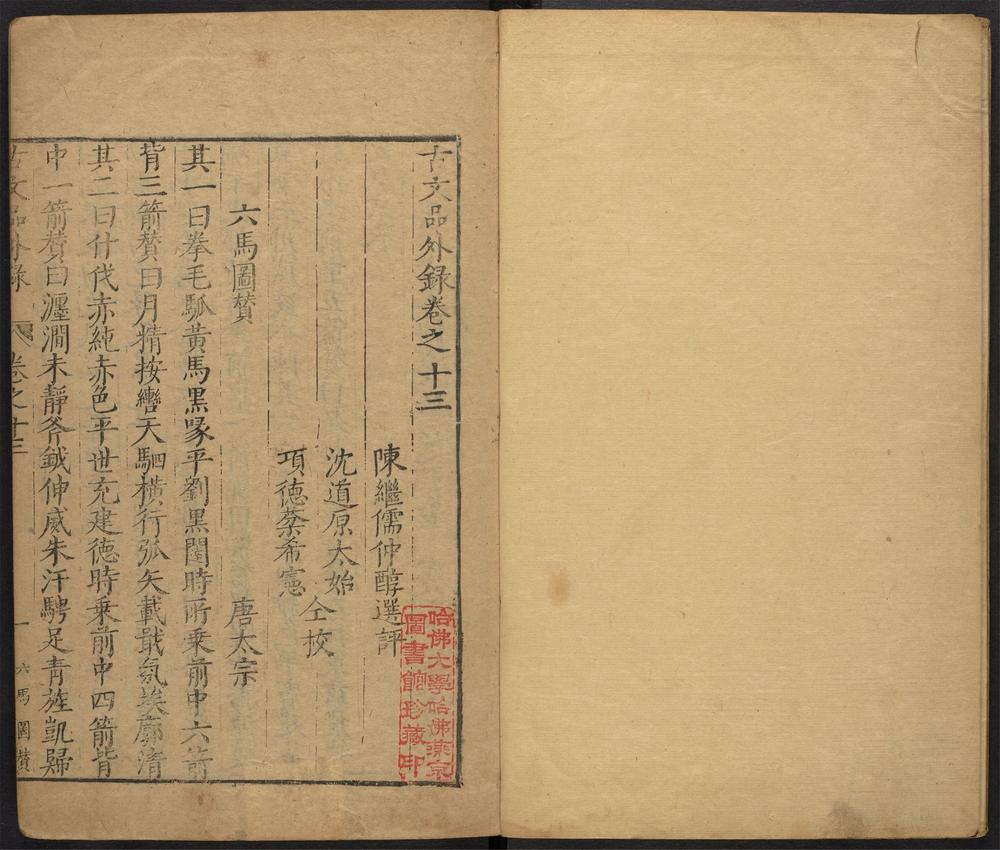 古文品外錄卷之十三
陳繼儒仲醇選評
沈道原太始
項德棻希憲
仝校
六馬圖贊　唐太宗
其一曰拳毛騧黃馬黑喙平劉黑闥時所乗前中六箭
背三箭贊曰月精按轡天駟橫行弧矢載戢氛埃廓清
其二曰什伐赤純赤色平世充建德時乗前中四箭背
中一箭贊曰瀍澗未靜斧鉞伸威朱汗騁足青旌凱歸
古文品外錄　卷之十三　一　六馬圖贊
哈佛大學哈佛燕京
圖書館珍藏印